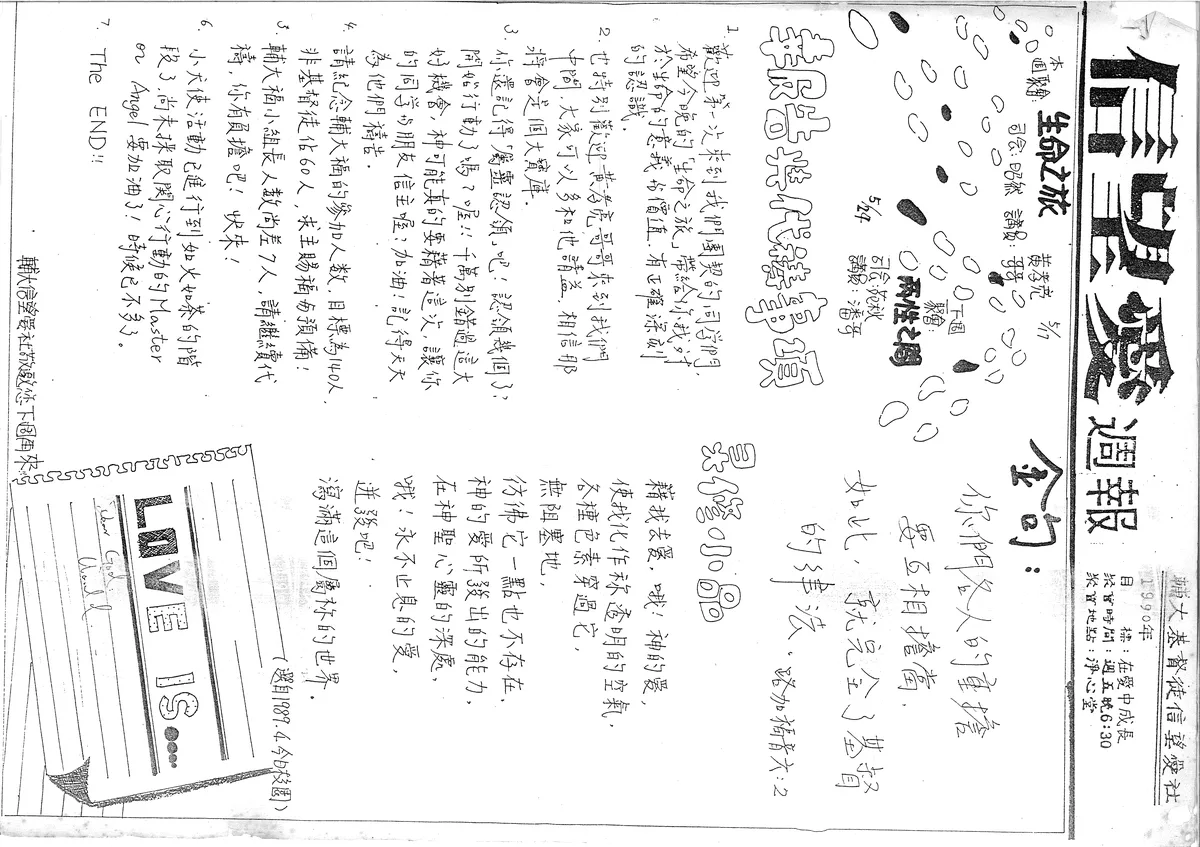 信望愛週報
輔大基督徒信望愛社
1990年
目標：在愛中成長
聚會時間：週五晚6:30
聚會地點：淨心堂
本週聚會：
生命之旅
5/17
司會：昭然 講員：黃孝亮哥哥
下週聚會：
兩性之間
5/24
司會：苑秋
講員：潘哥
金句：
你們各人的重擔
要互相擔當，
如此，就完全了基督
的律法、路加福音六：2
報告與代禱事項
1. 歡迎第一次來到我們團契的同學們，
希望今晚的「生命之旅」帶給你我對
於生命的意義與價值有正確深刻
的認識。
2. 也特別歡迎黃孝亮哥哥來到我們
中間，大家可以多和他請益，相信那
將會是個大寶庫。
3. 你還記得「屬靈認領」吧！認領幾個了？
開始行動了嗎？喔！！千萬別錯過這大
好機會，神可能真的要藉著這次，讓你
的同學與朋友信主喔？加油！記得天天
為他們禱告。
4. 請紀念輔大福的參加人數，目標為140人，
非基督徒佔60人，求主賜福與預備！
5. 輔大福小組長人數尚差7人，請繼續代
禱，你有負擔吧！快來！
6. 小天使活動已進行到如火如荼的階
段了，尚未採取關心行動的Master
or Angel要加油了！時候已不多了。
7. The END!!
靈修小品
藉我去愛，哦！神的愛，
使我化作称透明的空氣，
各種色素穿過它，
無阻塞地，
彷彿它一點也不存在，
神的愛所發出的能力，
在神聖心靈的深處，
哦！永不止息的愛，
迸發吧！
瀉滿這個屬祢的世界。
(選自1989.4.今日校園)
LOVE IS...
Dear God,
輔大信望愛社敬邀您下週再來